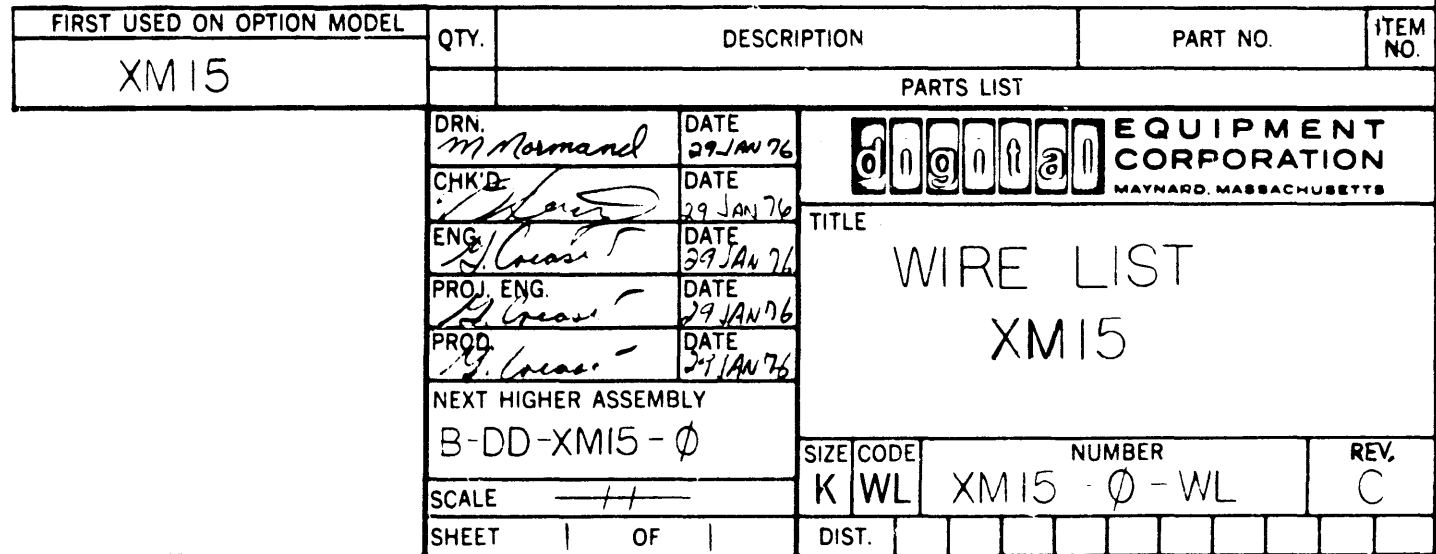 FIRST USED ON OPTION MODEL
XM15
QTY.
DESCRIPTION
PART NO.
ITEM NO.
PARTS LIST
DRN.
M Normand
DATE
29 JAN 76
CHK'D
DATE
29 JAN 76
ENG.
DATE
29 JAN 76
PROJ. ENG.
DATE
29 JAN 76
PROD.
DATE
29 JAN 76
digital EQUIPMENT
CORPORATION
MAYNARD, MASSACHUSETTS
TITLE
WIRE LIST
XM15
NEXT HIGHER ASSEMBLY
B-DD-XM15-Ø
SIZE
K
CODE
WL
NUMBER
XM15-Ø-WL
REV.
C
SCALE
SHEET 1 OF 1
DIST.